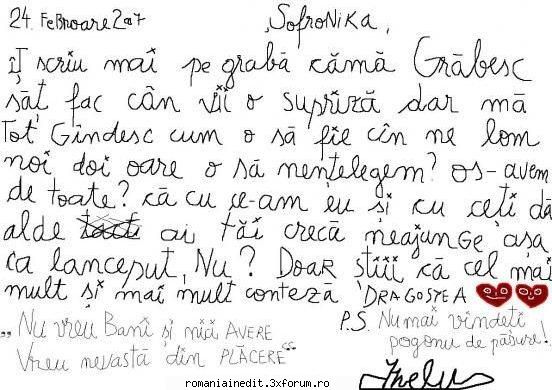 24. FeBRoare 2007 „SofroNiKa„
Îț scriu mai pe grabă cămă Grăbesc
săț fac cân vii o supriză dar mă
Tot Gindesc cum o să fie cîn ne lom
noi doi oare o să nențelegem? os-avem
de toate? că cu ce-am eu și cu ceti dă
alde ai, tăi crecă neajunge așa
ca lanceput, Nu? Doar știi că cel mai
mult și mai mult contează DRAGOSTEA
„Nu vreu Bani și nică AVERE
Vreu nevastă din PLĂCERE“
P.S. Numai vindeți
pogonu de pădure!
Ihelu
romaniainedit.3xforum.ro